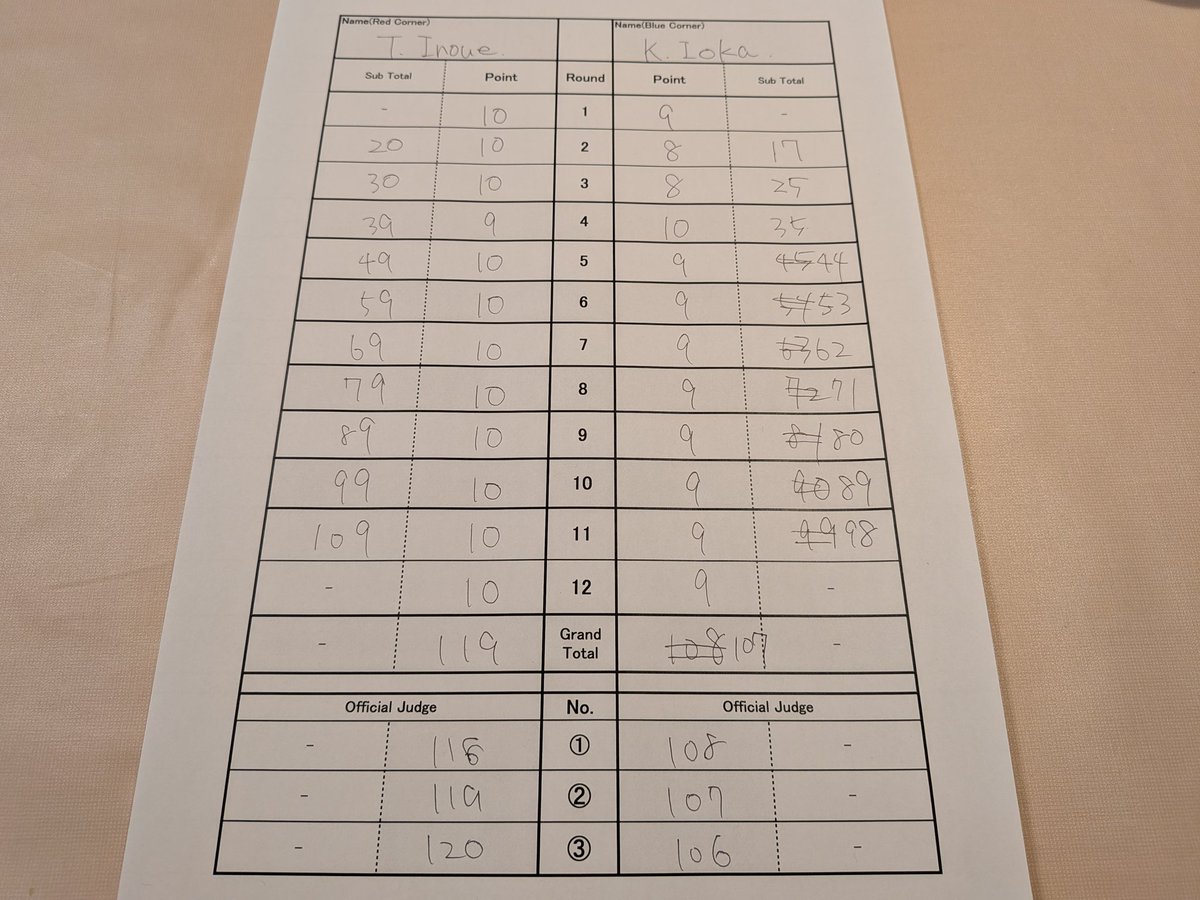 Name(Red Corner) Name(Blue Corner)
T. Inoue. K. Ioka.
Sub Total Point Round Point Sub Total
- 10 1 9 -
20 10 2 8 17
30 10 3 8 25
39 9 4 10 35
49 10 5 9 45 44
59 10 6 9 54 53
69 10 7 9 63 62
79 10 8 9 72 71
89 10 9 9 81 80
99 10 10 9 90 89
109 10 11 9 99 98
- 10 12 9 -
- 119 Grand Total 108 107 -
Official Judge No. Official Judge
- ① 108 -
- 119 ② 107 -
- 120 ③ 106 -